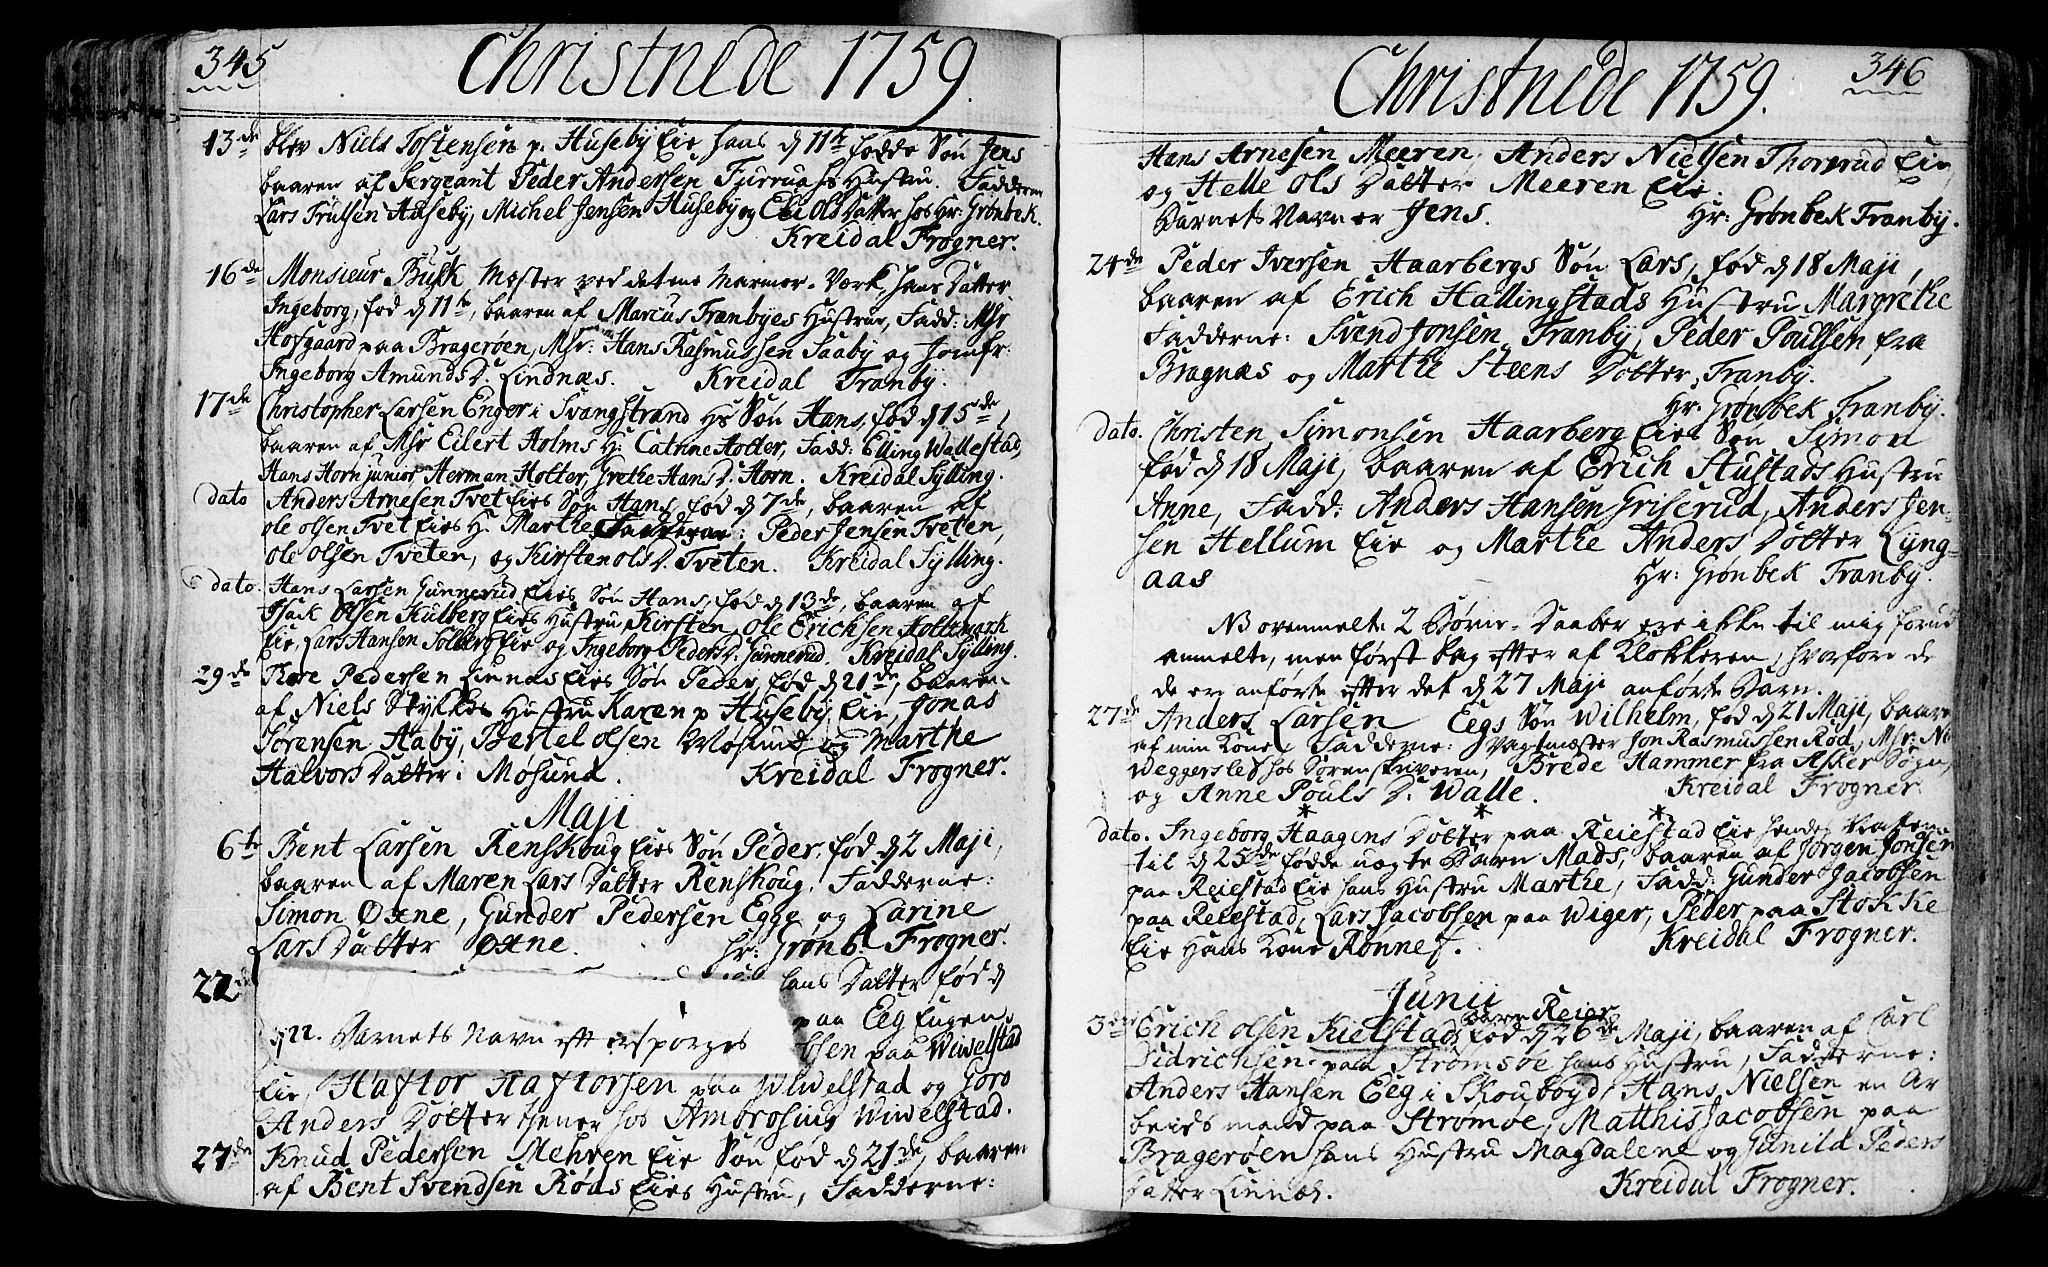 345
Christnede 1759.
13de blev Niels Tostensen p. Huseby Eie hans d 11te fødde Søn Jens
baaren af Sergeant Peder Andersen Furruahs Hustru. Fadderne
Lars Trulsen Huseby, Michel Jensen Huseby og Eli Ols Datter hos Hr: Grønbek.
Kreidal Frogner.
16de Monsieur Busk Mester ved detene Marmor-Værk, hans Datter
Ingeborg, fød d 11te, baaren af Marcus Tranbyes Hustrue, Fadd: Msr
Hofgaard paa Bragerøen, Msr: Hans Rasmussen Saaby og Jomfr:
Ingeborg Amunds D. Lindnæs. Kreidal Tranby.
17de Christopher Larsen Enger i Svangstrand Hs Søn Hans, fød d 15de,
baaren af Msr Eilert Holms H: Catrine Holter, Fadd: Elling Wallestad,
Hans Horn junior, Herman Holter, Grethe Hans D. Horn. Kreidal Sylling.
dato Anders Arnesen Tvet Eies Søn Hans, fød d 7de, baaren af
ole olsen Tvet Eies H: Marthe Fadderne: Peder Jensen Tveten,
ole olsen Tveten, og Kirsten ols D. Tveten. Kreidal Sylling.
dato. Hans Larsen Gunnerud Eies Søn Hans, fød d 13de, baaren af
Isack Olsen Kulberg Eies Hustru Kirsten, Ole Erichsen Holtzmark
Eie, Lars Hansen Solberg Eie og Ingeborg Peders D. Gunnerud. Kreidal Sylling.
29de Thore Pedersen Linnes Eies Søn Peder, fød d 21de, baaren
af Niels Hustru Karen p Huseby Eie, Jonas
Sørensen Aaby, Bertel olsen Møsund og Marthe
Halvors Datter i Møsund. Kreidal Frogner.
Maji
6te Bent Larsen Renskoug Eies Søn Peder, fød d 2 Maji,
baaren af Maren Lars Datter Renskoug. Fadderne:
Simon Oxne, Gunder Pedersen Egge og Larine
Lars Datter Oxne. Hr: Grønb. Frogner.
22de hans Datter fød d
paa Eeg Eugen
d 22. Barnets Navn efterspørges
olsen paa Wiwelstad
Eie, Haftor Haftorsen paa Wiwelstad og Goro
Anders Datter tiener hos Ambrosius Wiwelstad.
27de Knud Pedersen Mehren Eie Søn fød d 21de, baaren
af Bent Svendsen Røds Eies Hustru, Fadderne:
346
Christnede 1759.
Hans Arnesen Meeren, Anders Nielsen Thorsrud Eie
og Helle Ols Datter Meeren Eie.
Barnets Navn er Jens. Hr: Grønbek Tranby.
24de Peder Iversen Haarbergs Søn Lars, fød d 18 Maji,
baaren af Erich Hallingstads Hustru Margrethe
Fadderne: Svend Jonsen Tranby, Peder Poulsen fra
Bragnæs og Marthe Steens Datter, Tranby.
Hr: Grønbek Tranby.
dato. Christen Simonsen Haarberg Eies Søn Simon
fød d 18 Maji, baaren af Erich Stustads Hustru
Anne, Fadd: Anders Hansen Griserud, Anders Jen-
sen Hellum Eie og Marthe Anders Datter Lyng-
aas Hr: Grønbek Tranby.
NB ovenmelte 2 Børne-Daaber ere ikke til mig forud
anmelte, men først bag efter af Klokkeren, hvorfore de
de er anførte efter det d 27 Maji anførte Barn.
27de Anders Larsen Eegs Søn Wilhelm, fød d 21 Maji, baaren
af min Kone Fadderne: Vagtmester Jon Rasmussen Rød, Msr: Ni
Weggersløf hos Sorenskriveren, Brede Hammer fra Asker Sogn,
og Anne Pouls D: Walle. Kreidal Frogner.
dato. Ingeborg Haagens Datter paa Reiestad Eie hendes
til d 25de fødde uægte Barn Mads, baaren af Jørgen Jonsen
paa Reiestad Eie hans Hustru Marthe, Fadd: Gunder Jacobsen
paa Reiestad, Lars Jacobsen paa Wiger, Peder paa Stokke
Eie Hans Kone Rønnef. Kreidal Frogner.
Junii
Barn Reier
3de Erich olsen Kielstads fød d 26de Maji, baaren af Carl
Didrichsen paa Strømsøe hans Hustru, Fadderne:
Anders Hansen Eeg i Skouboyd, Hans Nielsen en Ar
beids mand paa Strømøe, Matthis Jacobsen paa
Bragerøen hans Hustru Magdalene og Gunild Peders
Datter Linnes. Kreidal Frogner.